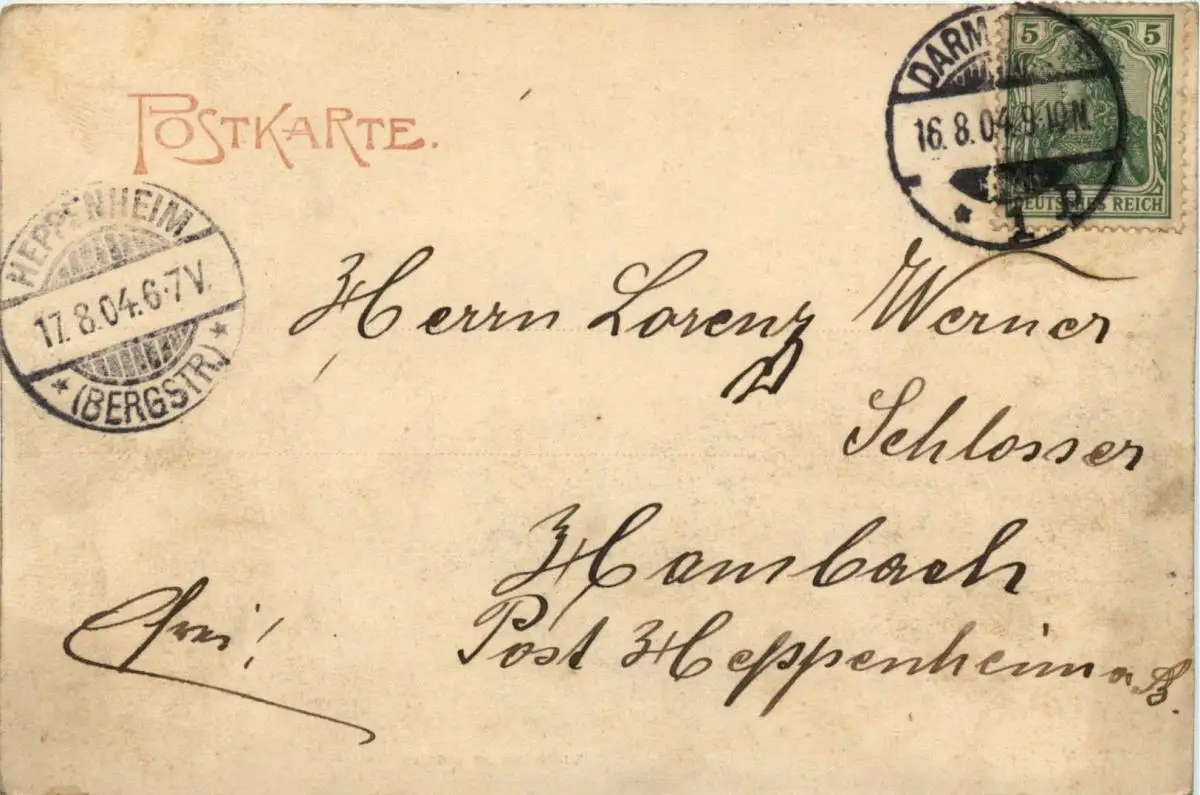 POSTKARTE.
DARM
16.8.04.9-10N.
* 1 p
5 5
DEUTSCHES REICH
HEPPENHEIM
17.8.04.6-7V.
* (BERGSTR) *
Herrn Lorenz Werner
Schlosser
Hambach
Post Heppenheim a B.
frei!